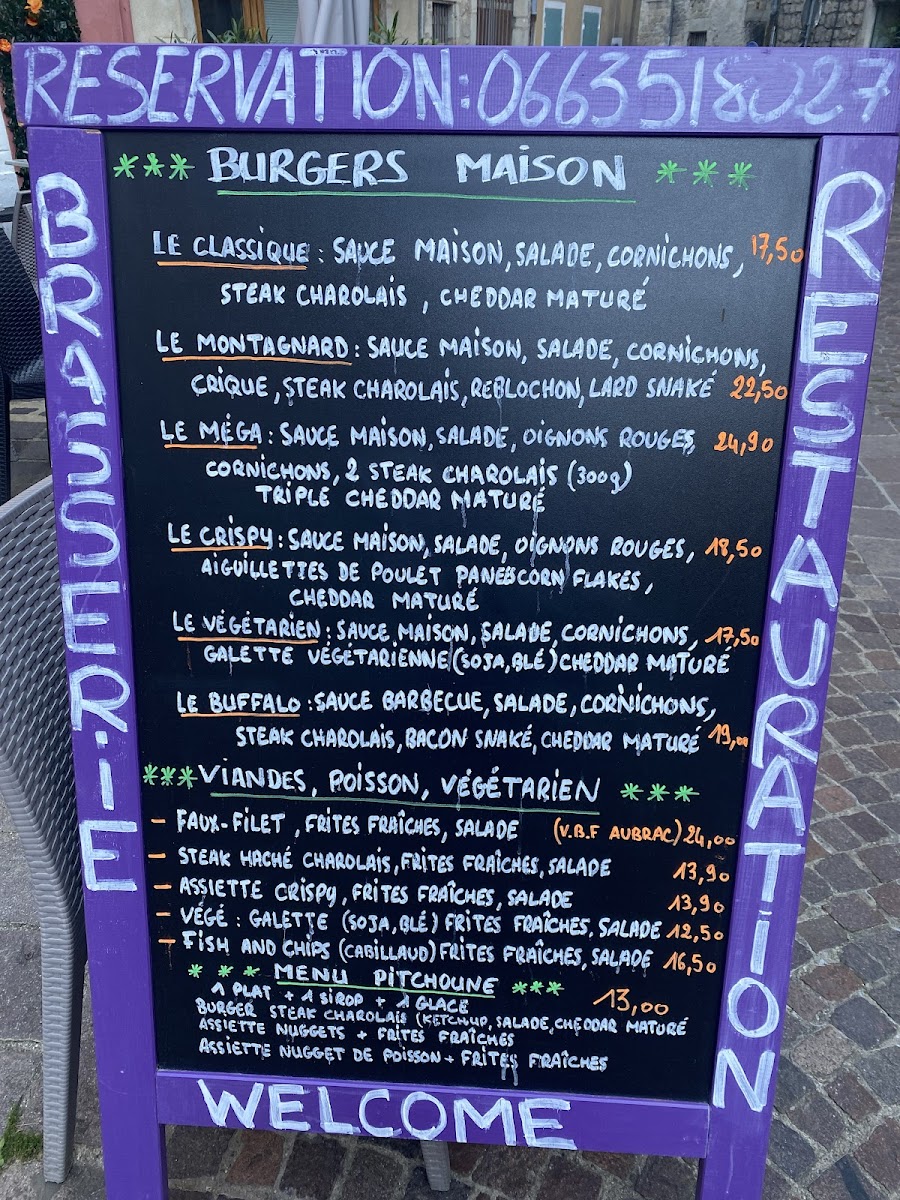 RESERVATION: 0663518027
BRASSERIE
RESTAURATION
*** BURGERS MAISON ***
LE CLASSIQUE : SAUCE MAISON, SALADE, CORNICHONS, 17,50
STEAK CHAROLAIS , CHEDDAR MATURÉ
LE MONTAGNARD : SAUCE MAISON, SALADE, CORNICHONS,
CRIQUE, STEAK CHAROLAIS, REBLOCHON, LARD SNAKÉ 22,50
LE MÉGA : SAUCE MAISON, SALADE, OIGNONS ROUGES, 24,90
CORNICHONS, 2 STEAK CHAROLAIS (300g)
TRIPLE CHEDDAR MATURÉ
LE CRISPY : SAUCE MAISON, SALADE, OIGNONS ROUGES, 18,50
AIGUILLETTES DE POULET PANÉES CORN FLAKES,
CHEDDAR MATURÉ
LE VÉGÉTARIEN : SAUCE MAISON, SALADE, CORNICHONS, 17,50
GALETTE VÉGÉTARIENNE (SOJA, BLÉ) CHEDDAR MATURÉ
LE BUFFALO : SAUCE BARBECUE, SALADE, CORNICHONS,
STEAK CHAROLAIS, BACON SNAKÉ, CHEDDAR MATURÉ 19,00
*** VIANDES, POISSON, VÉGÉTARIEN ***
- FAUX-FILET , FRITES FRAÎCHES, SALADE (V.B.F AUBRAC) 24,00
- STEAK HACHÉ CHAROLAIS, FRITES FRAÎCHES, SALADE 13,90
- ASSIETTE CRISPY, FRITES FRAÎCHES, SALADE 13,90
- VÉGÉ : GALETTE (SOJA, BLÉ) FRITES FRAÎCHES, SALADE 12,50
- FISH AND CHIPS (CABILLAUD) FRITES FRAÎCHES, SALADE 16,50
*** MENU PITCHOUNE ***
1 PLAT + 1 SIROP + 1 GLACE 13,00
BURGER STEAK CHAROLAIS (KETCHUP, SALADE, CHEDDAR MATURÉ
ASSIETTE NUGGETS + FRITES FRAÎCHES
ASSIETTE NUGGET DE POISSON + FRITES FRAÎCHES
WELCOME